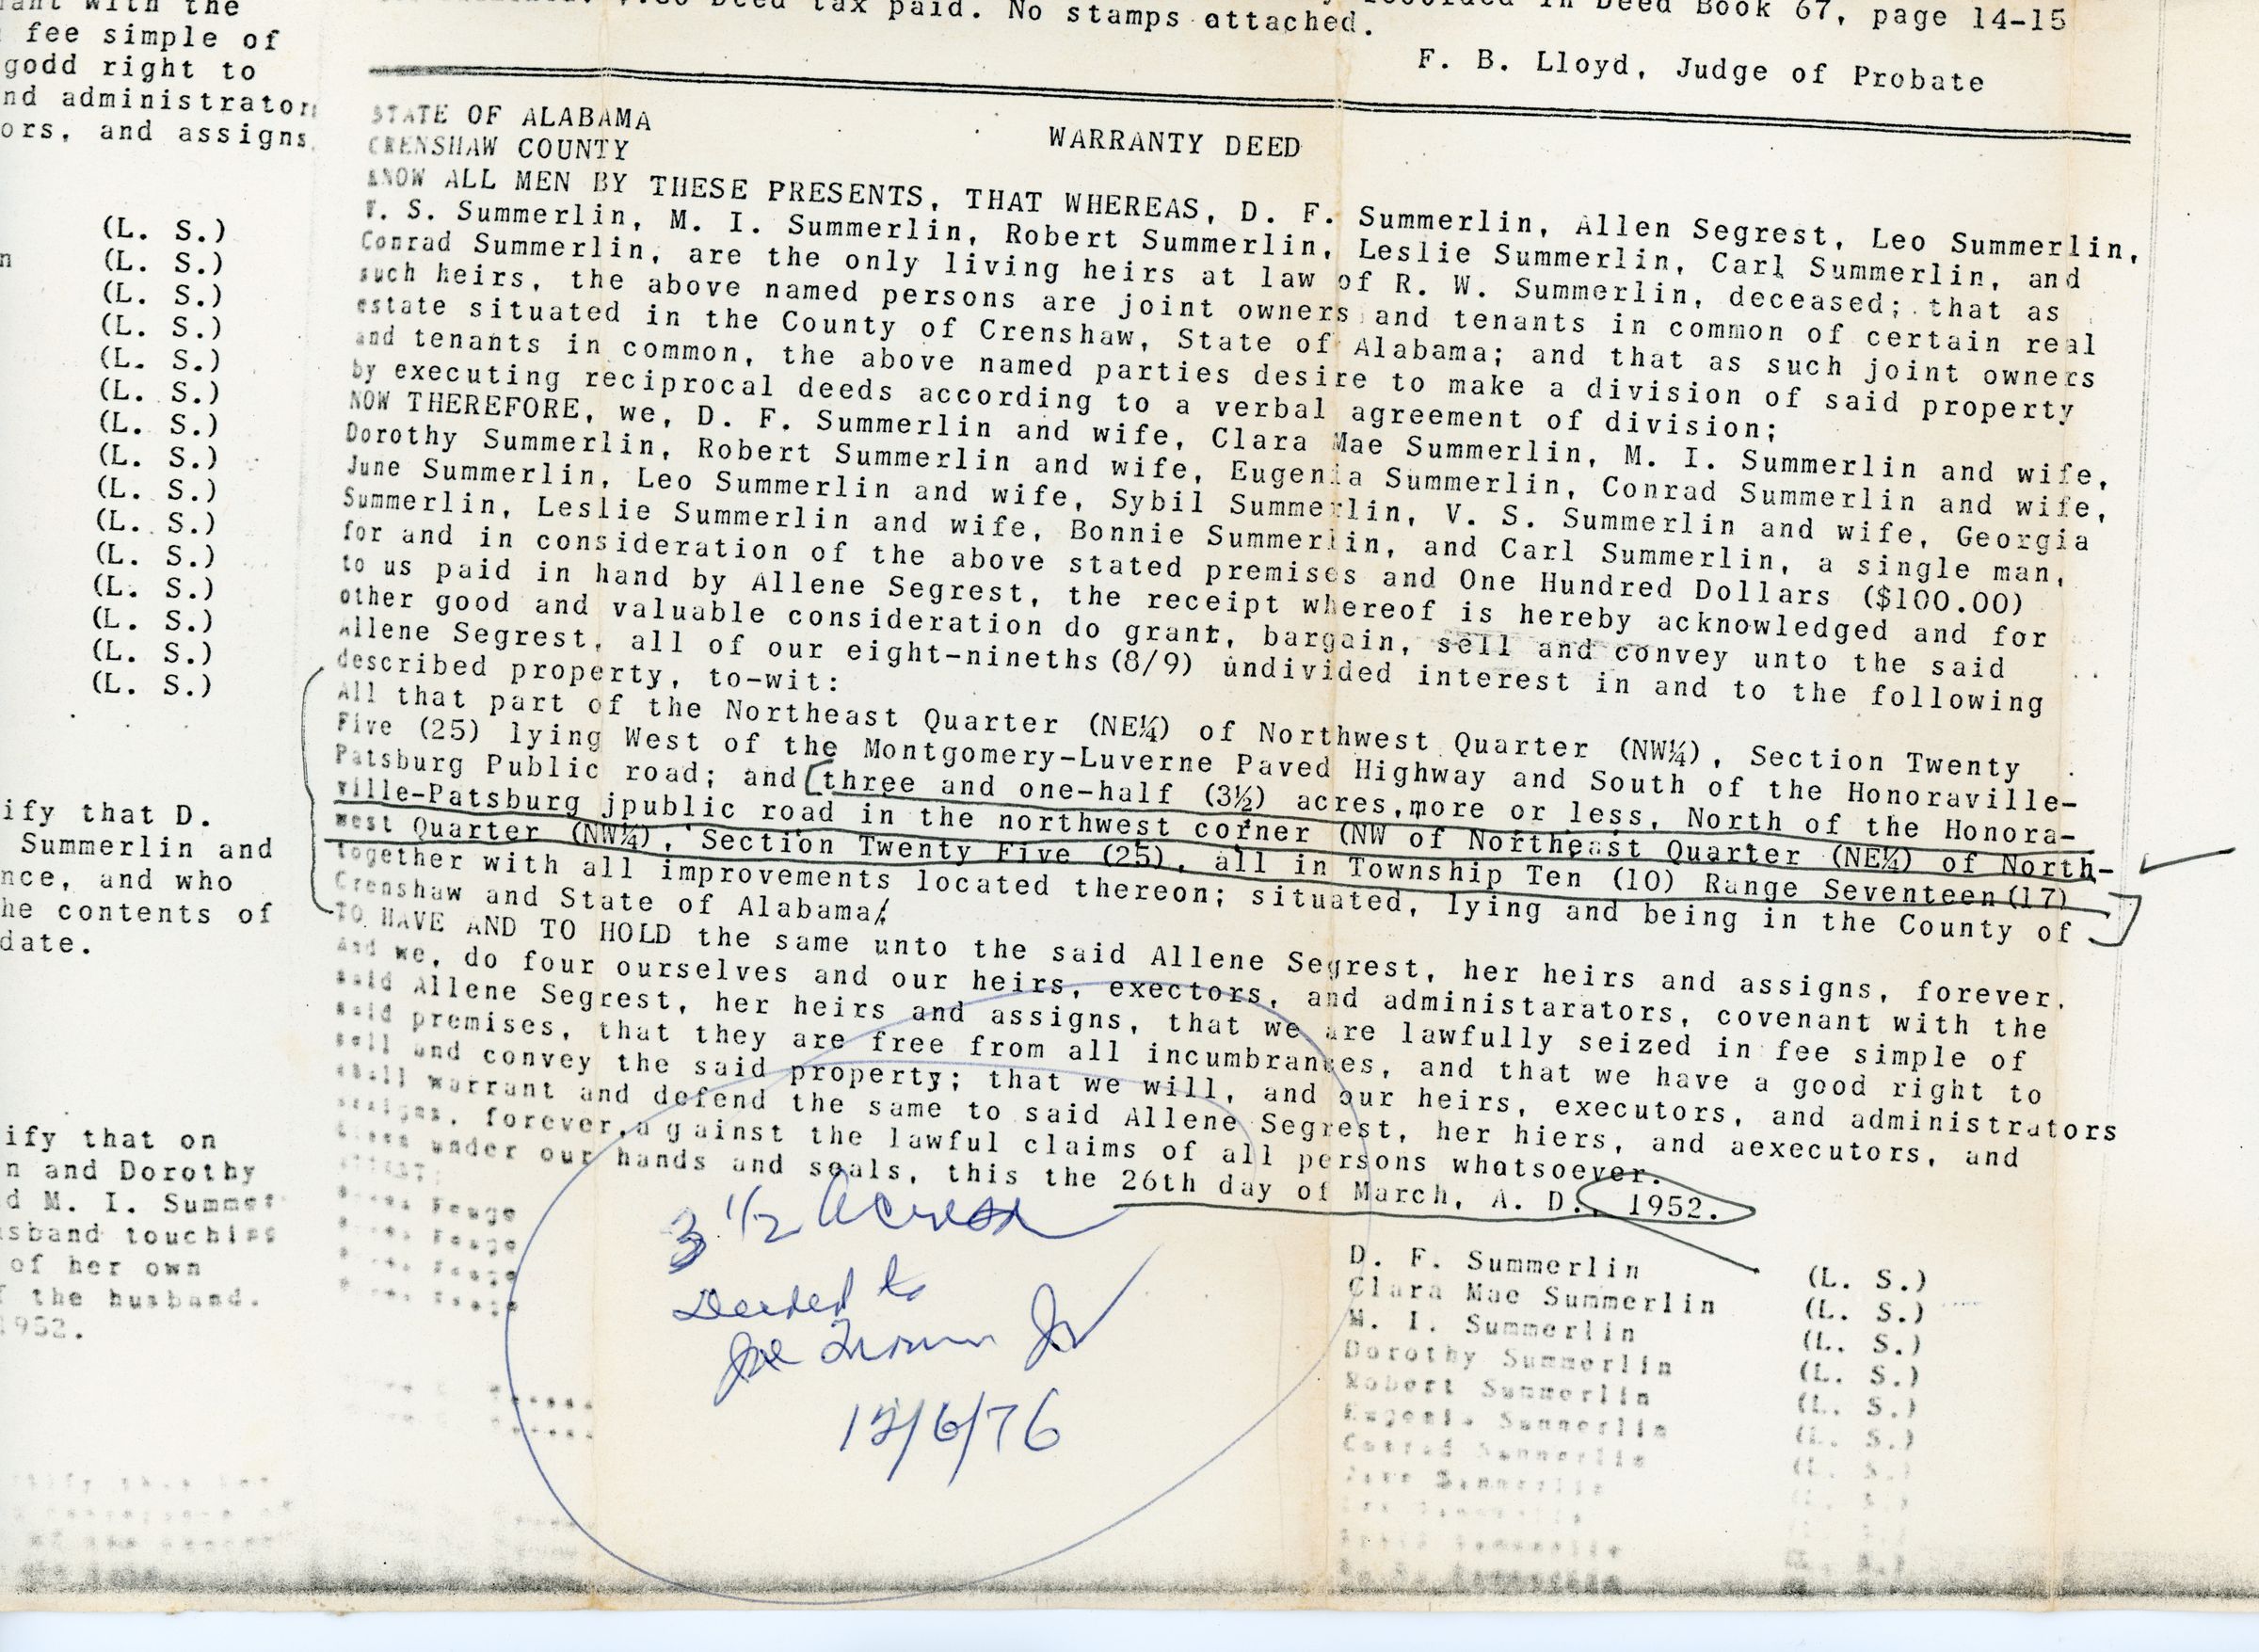 ant with the
fee simple of
godd right to
nd administrator
ors, and assigns
(L. S.)
n (L. S.)
(L. S.)
(L. S.)
(L. S.)
(L. S.)
(L. S.)
(L. S.)
(L. S.)
(L. S.)
(L. S.)
(L. S.)
(L. S.)
(L. S.)
(L. S.)
ify that D.
Summerlin and
nce, and who
he contents of
date.
ify that on
n and Dorothy
d M. I. Summer
usband touching
of her own
f the husband.
1952.
recorded in Deed Book 67, page 14-15
Deed tax paid. No stamps attached.
F. B. Lloyd, Judge of Probate
STATE OF ALABAMA
CRENSHAW COUNTY
WARRANTY DEED
KNOW ALL MEN BY THESE PRESENTS, THAT WHEREAS, D. F. Summerlin, Allen Segrest, Leo Summerlin,
V. S. Summerlin, M. I. Summerlin, Robert Summerlin, Leslie Summerlin, Carl Summerlin, and
Conrad Summerlin, are the only living heirs at law of R. W. Summerlin, deceased; that as
such heirs, the above named persons are joint owners and tenants in common of certain real
estate situated in the County of Crenshaw, State of Alabama; and that as such joint owners
and tenants in common, the above named parties desire to make a division of said property
by executing reciprocal deeds according to a verbal agreement of division;
NOW THEREFORE, we, D. F. Summerlin and wife, Clara Mae Summerlin, M. I. Summerlin and wife,
Dorothy Summerlin, Robert Summerlin and wife, Eugenia Summerlin, Conrad Summerlin and wife,
June Summerlin, Leo Summerlin and wife, Sybil Summerlin, V. S. Summerlin and wife, Georgia
Summerlin, Leslie Summerlin and wife, Bonnie Summerlin, and Carl Summerlin, a single man,
for and in consideration of the above stated premises and One Hundred Dollars ($100.00)
to us paid in hand by Allene Segrest, the receipt whereof is hereby acknowledged and for
other good and valuable consideration do grant, bargain, sell and convey unto the said
Allene Segrest, all of our eight-nineths (8/9) undivided interest in and to the following
described property, to-wit:
All that part of the Northeast Quarter (NE¼) of Northwest Quarter (NW¼), Section Twenty
Five (25) lying West of the Montgomery-Luverne Paved Highway and South of the Honoraville-
Patsburg Public road; and three and one-half (3½) acres, more or less, North of the Honora-
ville-Patsburg jpublic road in the northwest corner (NW of Northeast Quarter (NE¼) of North-
west Quarter (NW¼), Section Twenty Five (25), all in Township Ten (10) Range Seventeen (17)
together with all improvements located thereon; situated, lying and being in the County of
Crenshaw and State of Alabama.
TO HAVE AND TO HOLD the same unto the said Allene Segrest, her heirs and assigns, forever.
And we, do four ourselves and our heirs, exectors, and administarators, covenant with the
said Allene Segrest, her heirs and assigns, that we are lawfully seized in fee simple of
said premises, that they are free from all incumbrances, and that we have a good right to
sell and convey the said property; that we will, and our heirs, executors, and administrators
shall warrant and defend the same to said Allene Segrest, her hiers, and aexecutors, and
assigns, forever, against the lawful claims of all persons whatsoever.
under our hands and seals, this the 26th day of March, A. D., 1952.
3 1/2 Acres
Deeded to
Joe Jr
12/6/76
D. F. Summerlin (L. S.)
Clara Mae Summerlin (L. S.)
M. I. Summerlin (L. S.)
Dorothy Summerlin (L. S.)
Robert Summerlin (L. S.)
Eugenia Summerlin (L. S.)
Conrad Summerlin (L. S.)